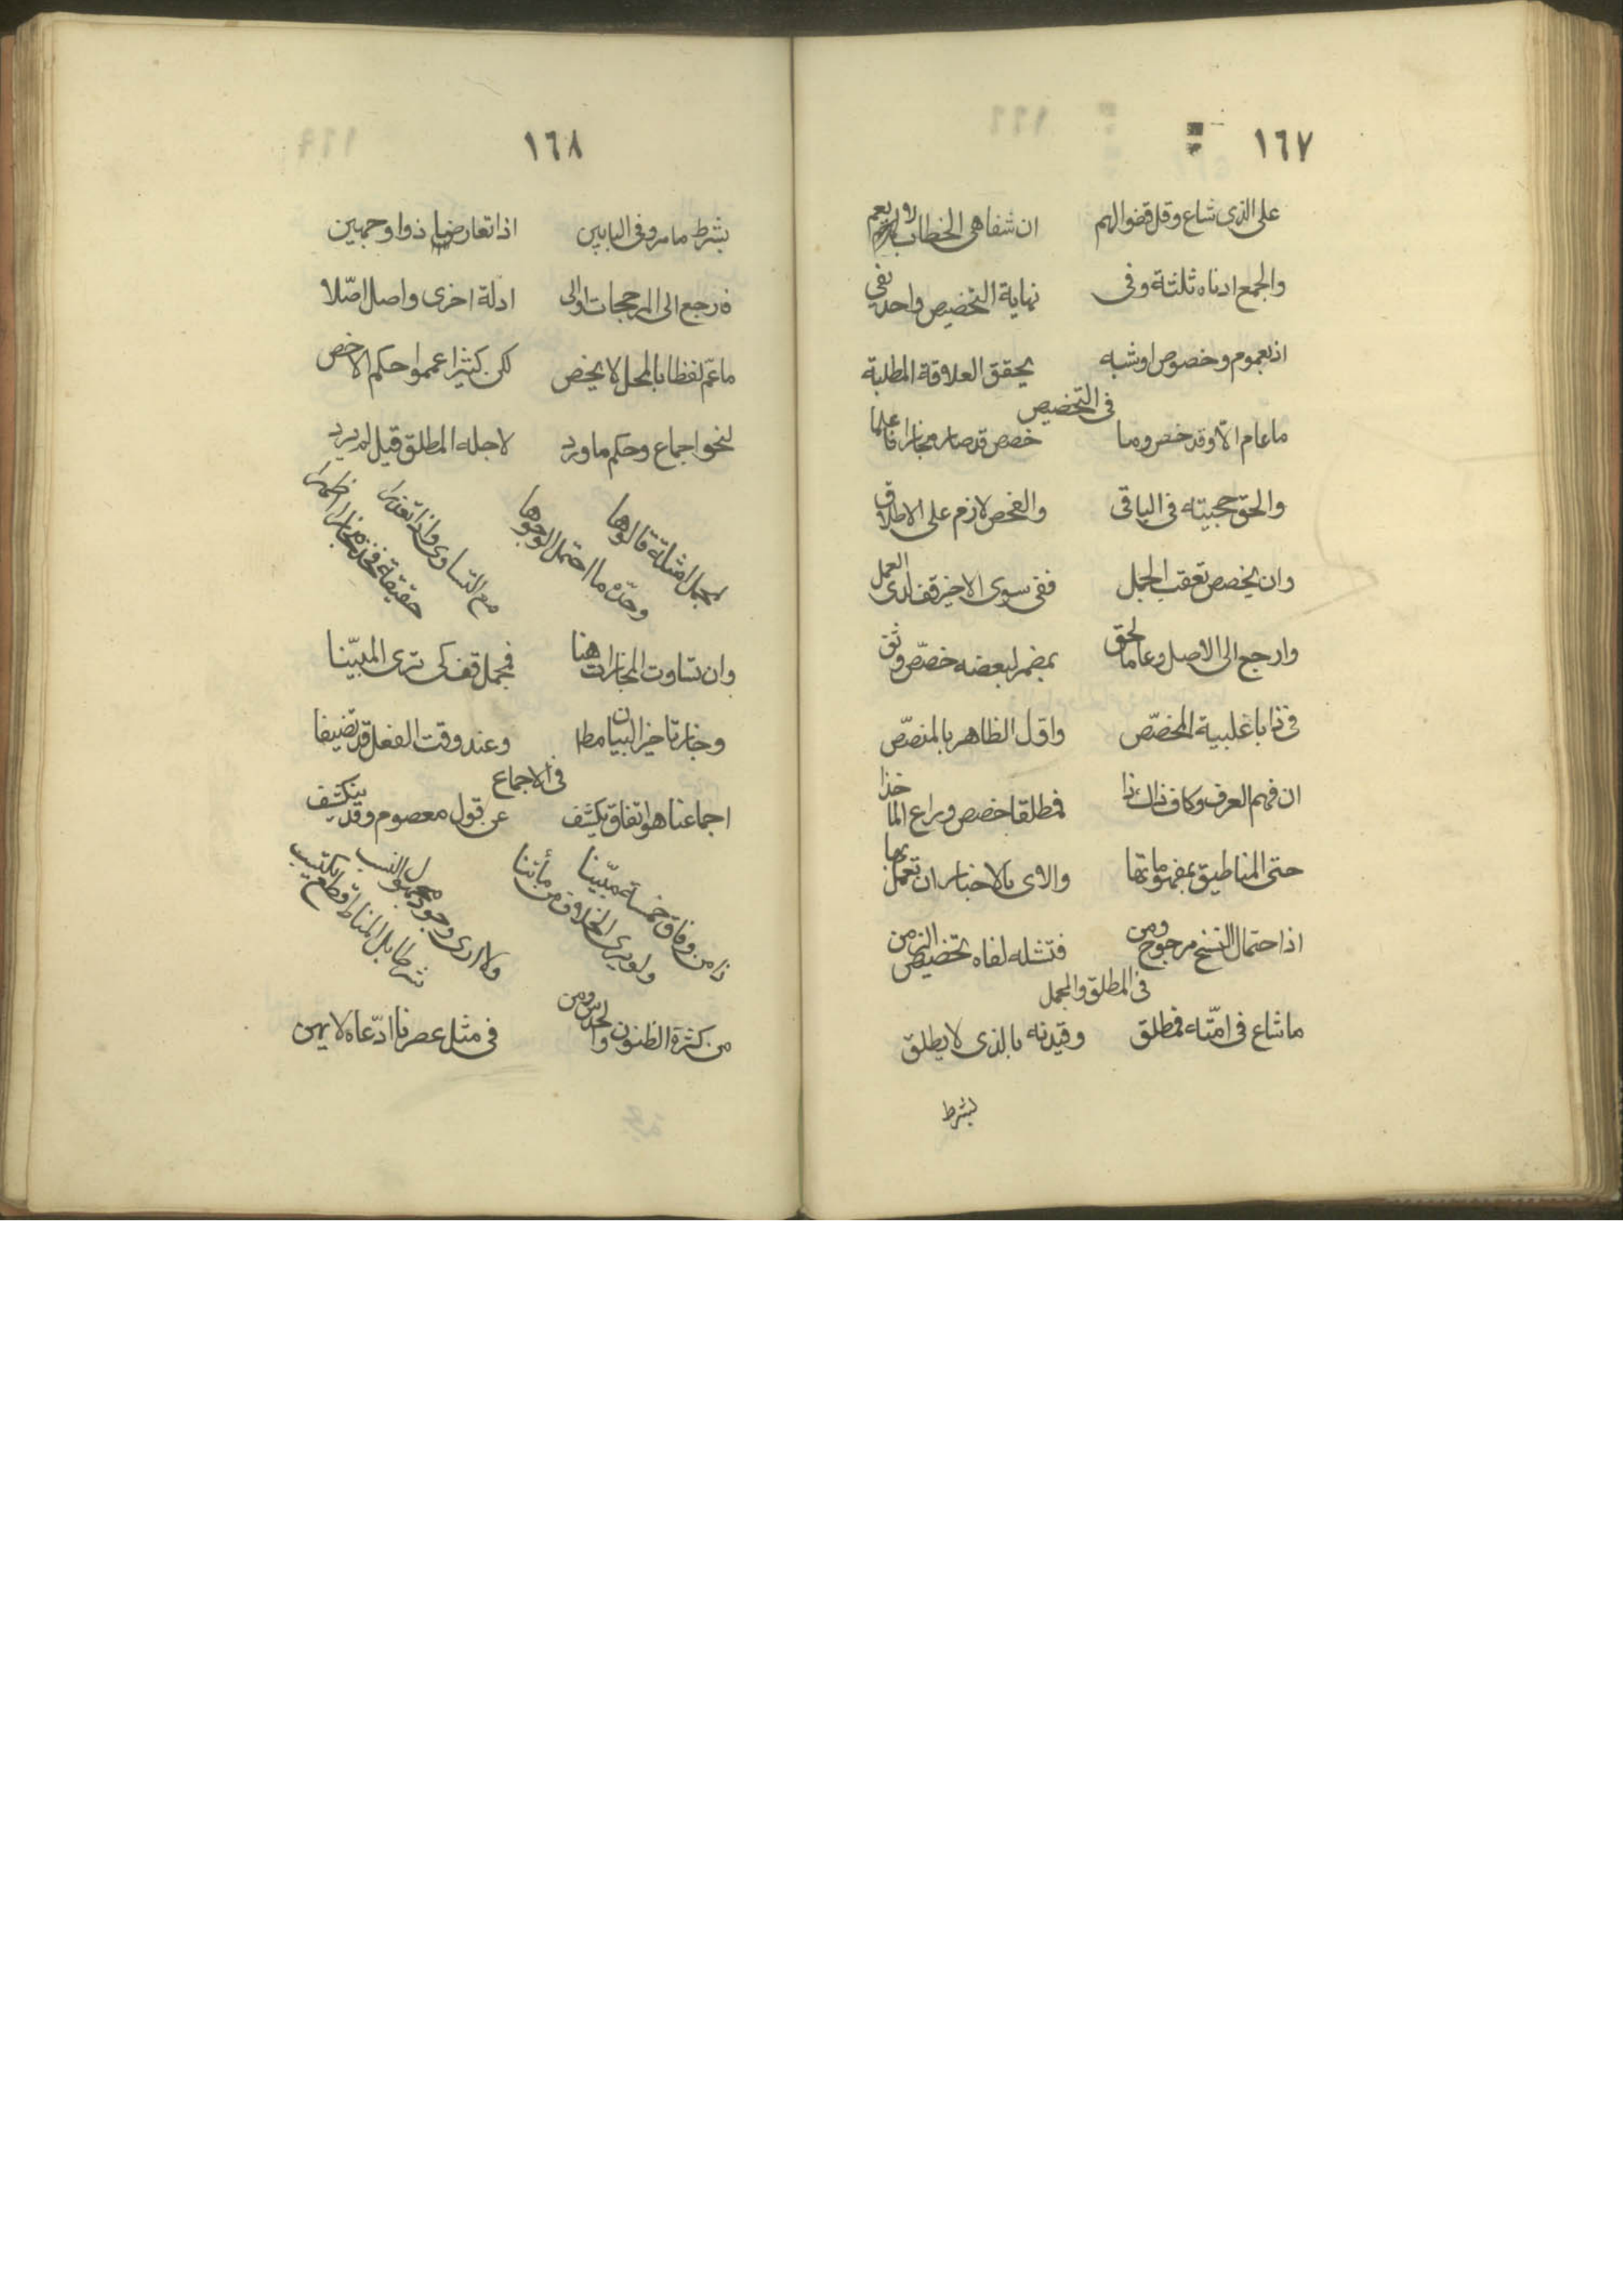 ١٦٧
على الذى شاع وقل قضوا لهم ان شفاهى الخطاب لا يعم
والجمع ادناه ثلثة وفى نهاية التخصيص واحد نفى
اذ بعموم وخصوص او شبه يحقق العلاقة المطلبة
فى التخصيص
ما عام الا وقد خص وما خصص قد صار مجازا فاعلما
والحق حجيته فى الباقى والفحص لازم على الاطلاق
وان يخصص تعقب الجمل ففى سوى الاخير قف لدى العمل
وارجع الى الاصل وعاما لحق بمضمر لبعضه خصّص وثق
فى ذا باغلبية المخصّص واوّل الظاهر بالمنصّص
ان فهم العرف وكاف ذاك ذا فمطلقا خصص وراع الماخذا
حتى المناطيق بمفهوماتها والاى بالاخبار ان تعمل بها
اذا احتمال النسخ مرجوح ومن فتشله لفاه تخصيص الزمن
فى المطلق والمجمل
ما شاع فى امّته فمطلق وقيدنه بالذى لا يطلق
بشرط
١٦٨
بشرط ما مر وفى البابين اذا تعارضا ذوا وجهين
فارجع الى المرجحات او الى ادلة اخرى واصل اصّلا
ما عمّ لفظا بالمحل لا يخص لكن كثيرا عمموا حكم الاخص
لنحو اجماع وحكم ما ورد لاجله المطلق قيل لم يرد
لمجمل امثلة قالوها وحدّه ما احتمل الوجوها
مع التساوى واذا تعذرا حقيقة فخذ مجازا اظهرا
وان تساوت المجازات هنا فمجمل قف كى ترى المبيّنا
وجاز تاخير البيان مطا وعند وقت الفعل قد تضيفا
فى الاجماع
اجماعنا هو اتفاق يكشف عن قول معصوم وقد ينكشف
ذا من وفاق خمسة مبيّنا ولو يرى الخلاف من مأتنا
ولا ارى وجود مجهول النسب شرطا بل المناط قطع يكتسب
من كثرة الظنون والحدس ومن فى مثل عصرنا ادّعاه لا يهن